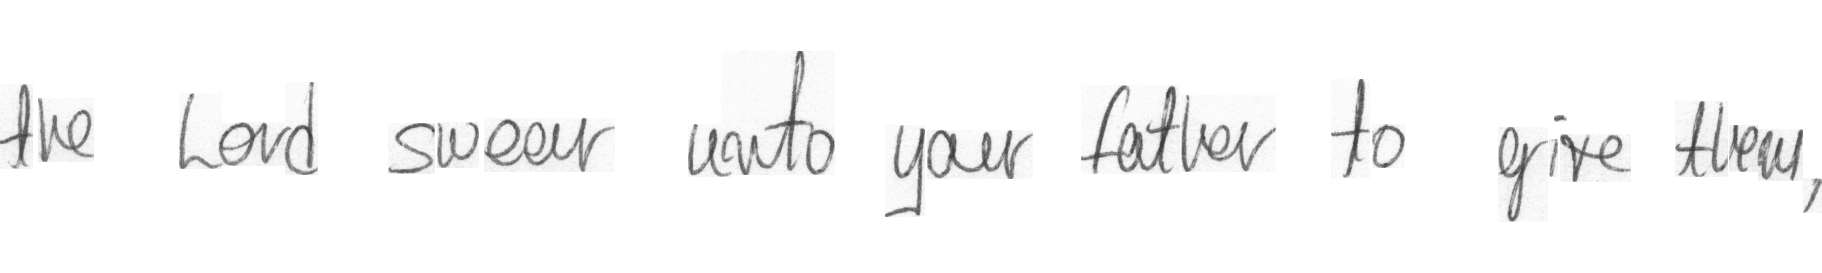 the Lord swear unto your father to give them,